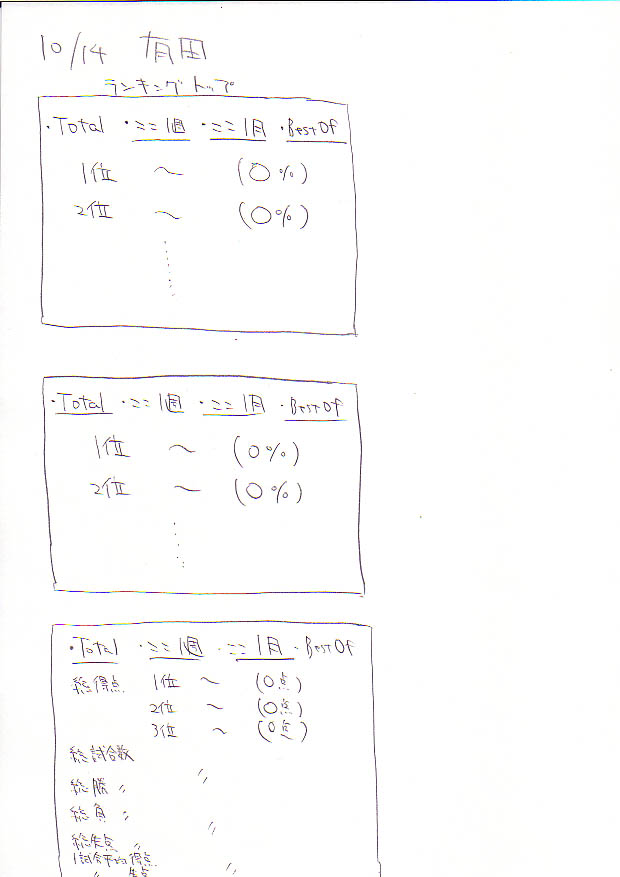 10/14 有田
ランキングトップ
・Total ・ここ1週 ・ここ1月 ・Best Of
1位 〜 (0%)
2位 〜 (0%)
・Total ・ここ1週 ・ここ1月 ・Best Of
1位 〜 (0%)
2位 〜 (0%)
・Total ・ここ1週 ・ここ1月 ・Best Of
総得点 1位 〜 (0点)
2位 〜 (0点)
3位 〜 (0点)
総試合数
総勝 〃 〃
総負 〃
〃
総失点 〃
1試合平均得点
〃 失点 〃